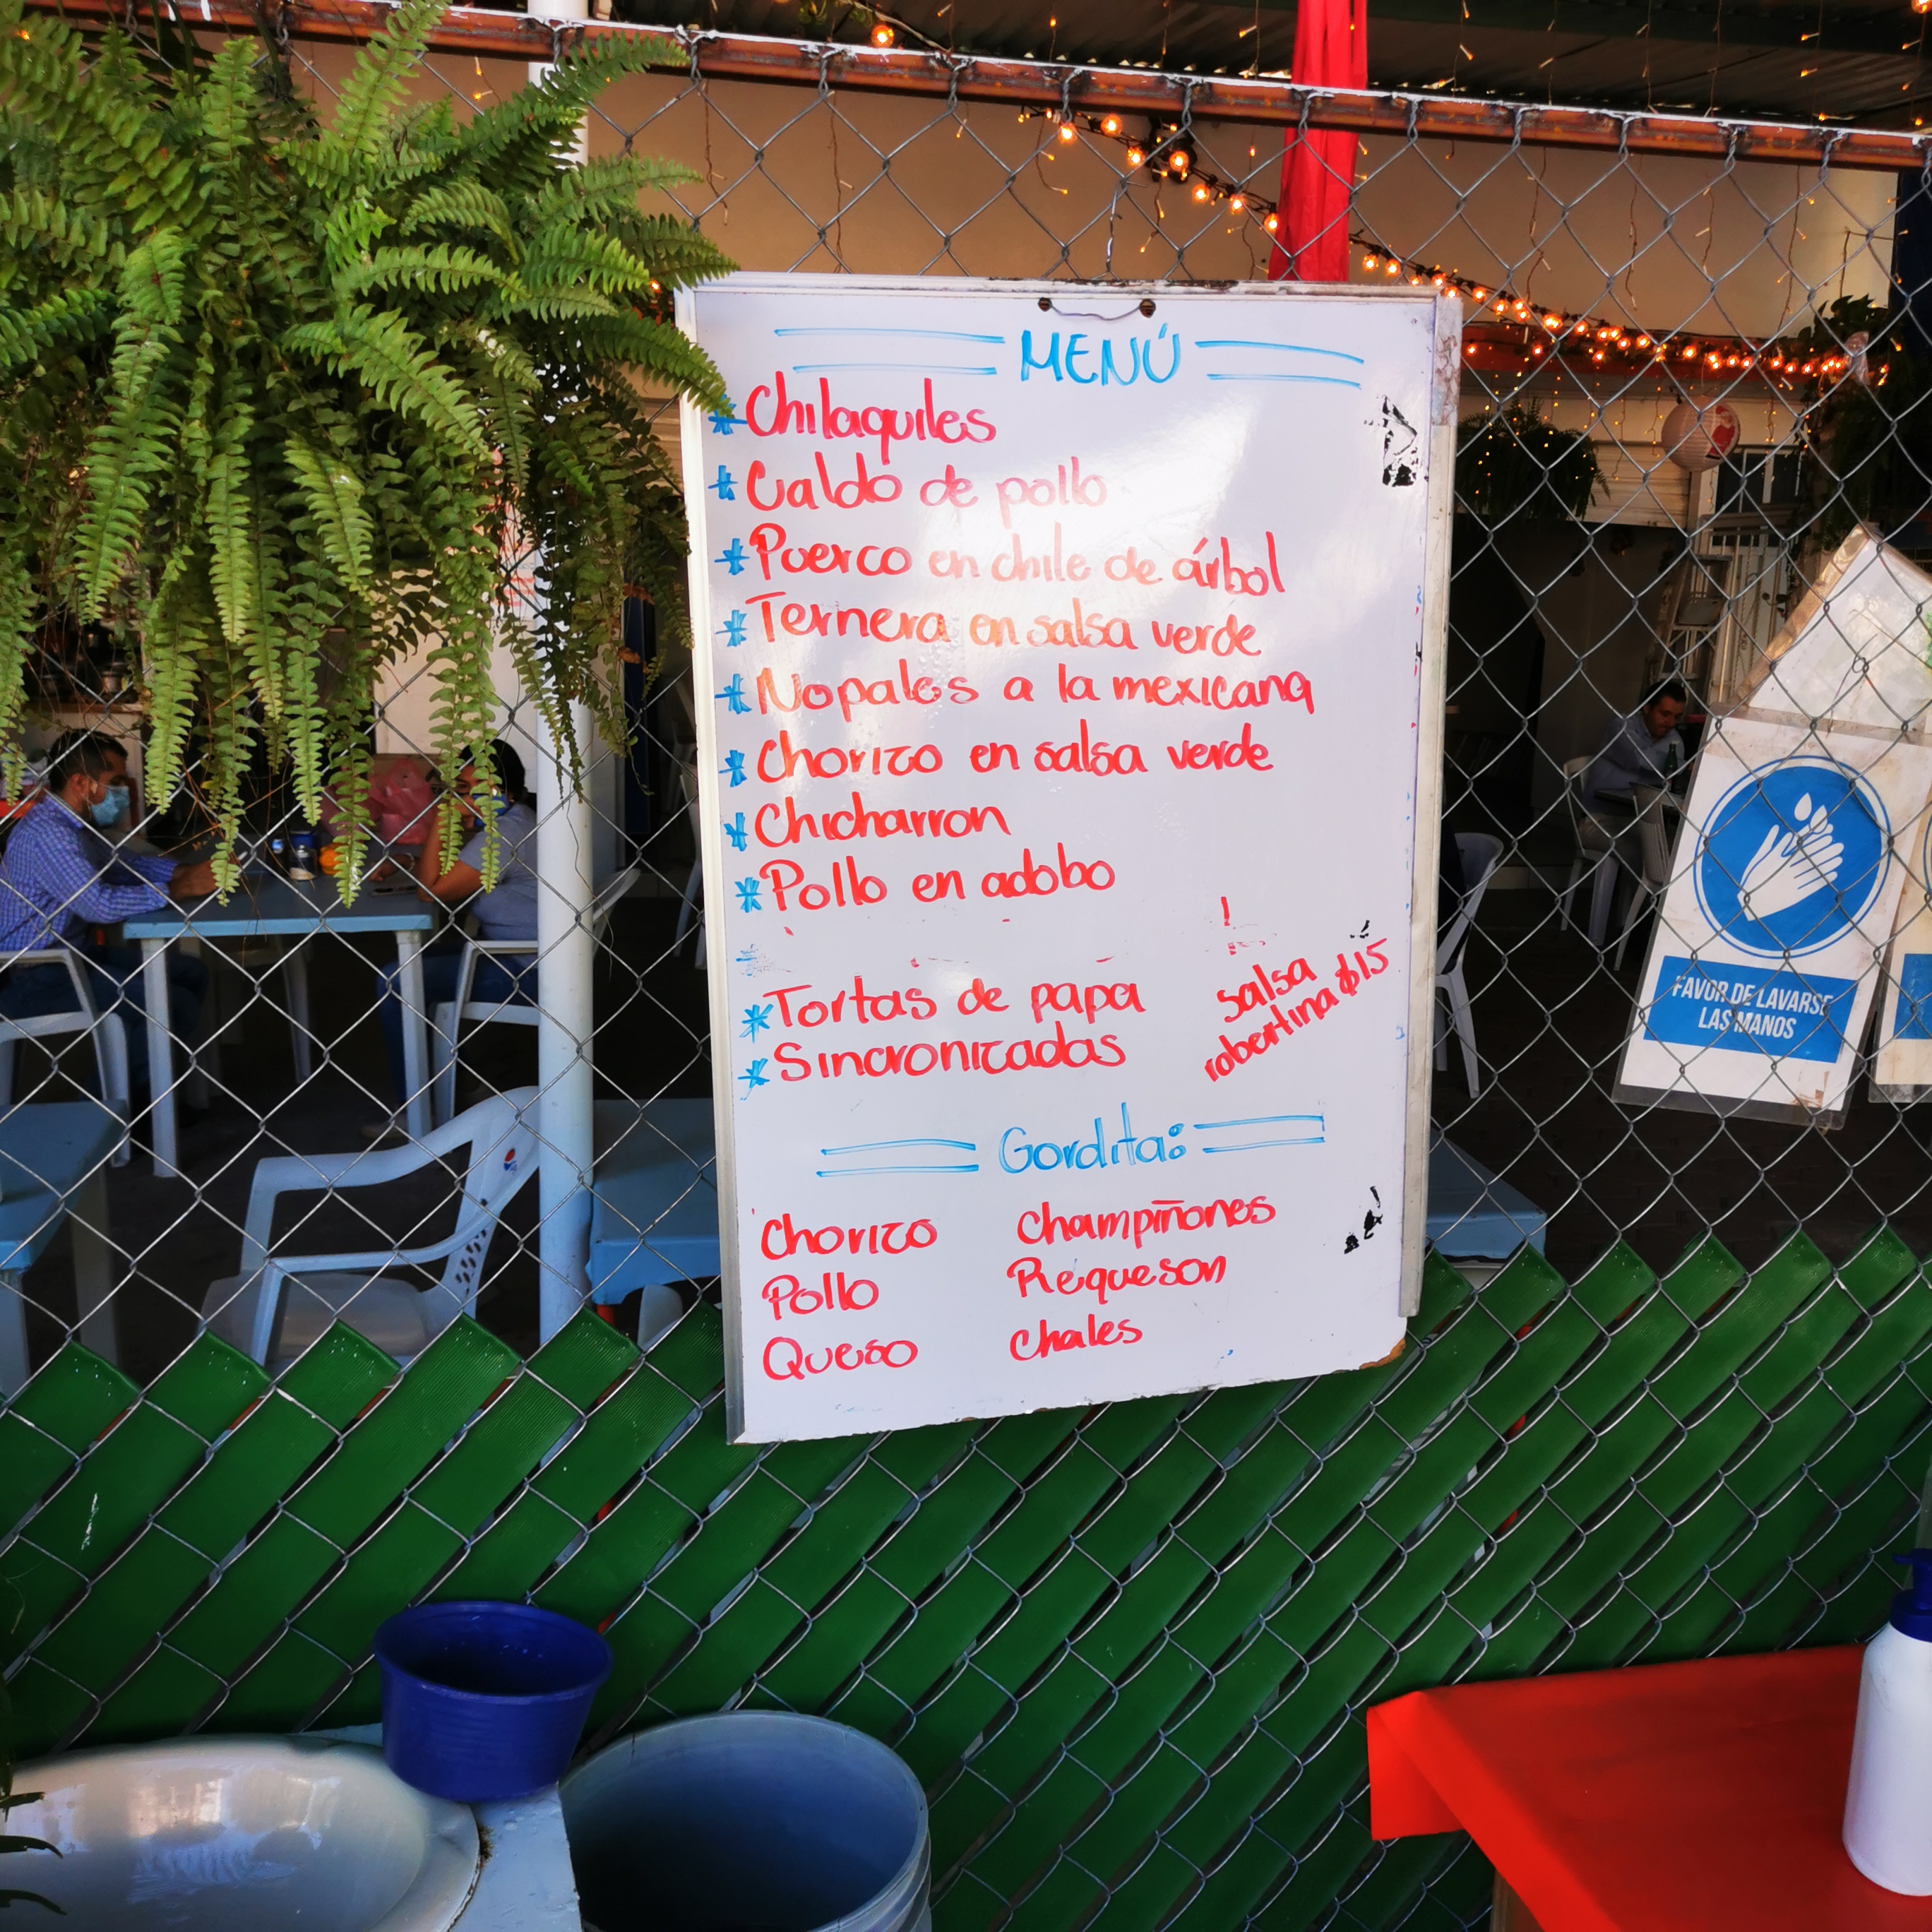 MENÚ
* Chilaquiles
* Caldo de pollo
* Puerco en chile de árbol
* Ternera en salsa verde
* Nopales a la mexicana
* Chorizo en salsa verde
* Chicharron
* Pollo en adobo
* Tortas de papa
* Sincronizadas
salsa
robertina $15
Gordita:
Chorizo Champiñones
Pollo Requeson
Queso Chales
FAVOR DE LAVARSE
LAS MANOS